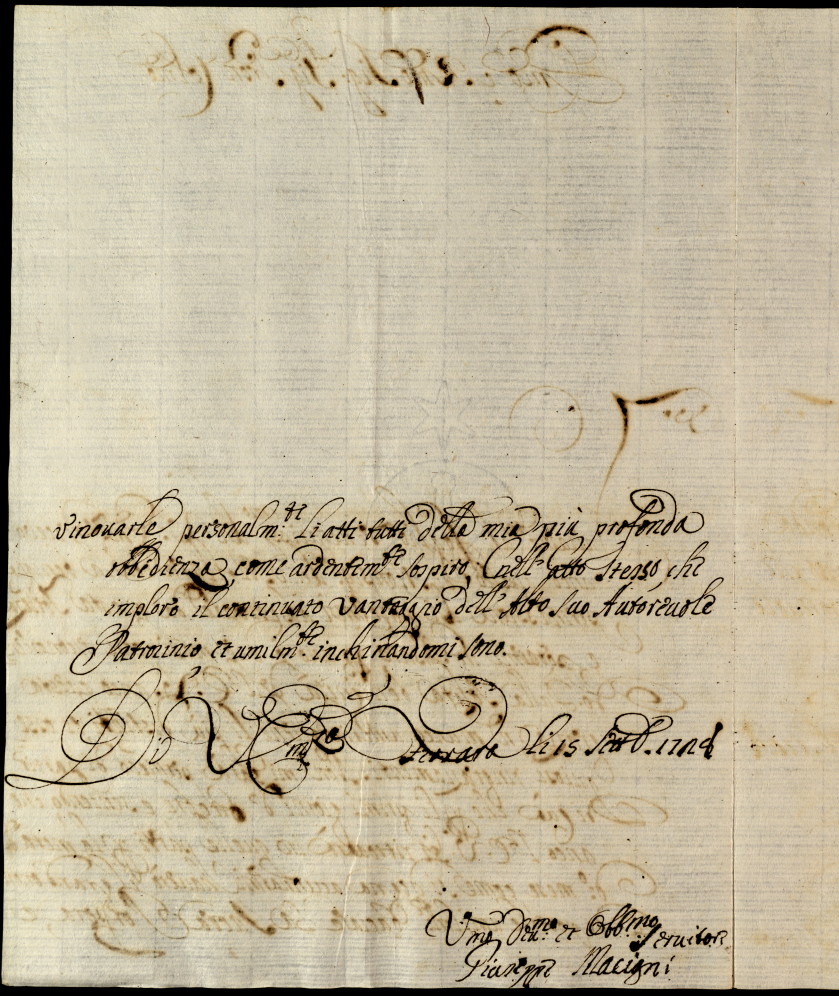 rinouarle personalm.te li atti tutti della mia più profonda
obbedienza, come ardentem.te sospiro, nell' stesso, che
imploro il continuato vantaggio dell' Alto suo Autoreuole
Patrocinio et umilm.te inchinandomi sono.
Di V. Ferrara li 15 Settb. 1724
Vmo Deu.mo et Obb.mo Seruitore
Giuseppe Macigni